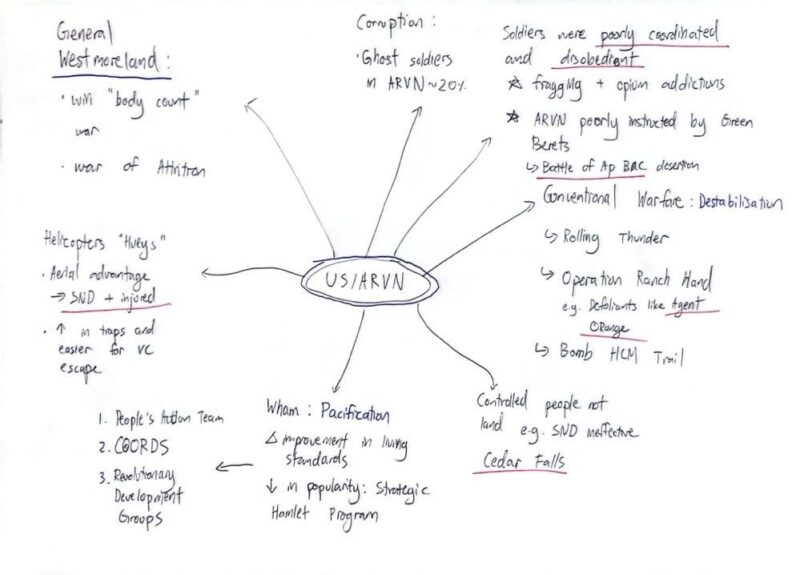 General
Westmoreland:
· win "body count"
war
· war of Attrition
Corruption:
· Ghost soldiers
in ARVN ~20%
Soldiers were poorly coordinated
and disobedient
☆ fragging + opium addictions
☆ ARVN poorly instructed by Green
Berets
↳ Battle of Ap BAC desertion
Conventional Warfare: Destabilisation
↳ Rolling Thunder
↳ Operation Ranch Hand
e.g. Defoliants like Agent
ORange
↳ Bomb HCM Trail
Helicopters "Hueys"
· Aerial advantage
→ SND + injured
· ↑ in traps and
easier for VC
escape
US/ARVN
Controlled people not
land e.g. SND ineffective
Cedar Falls
Wham: Pacification
△ improvement in living
standards
↓ in popularity: Strategic
Hamlet Program
1. People's Action Team
2. CORDS
3. Revolutionary
Development
Groups